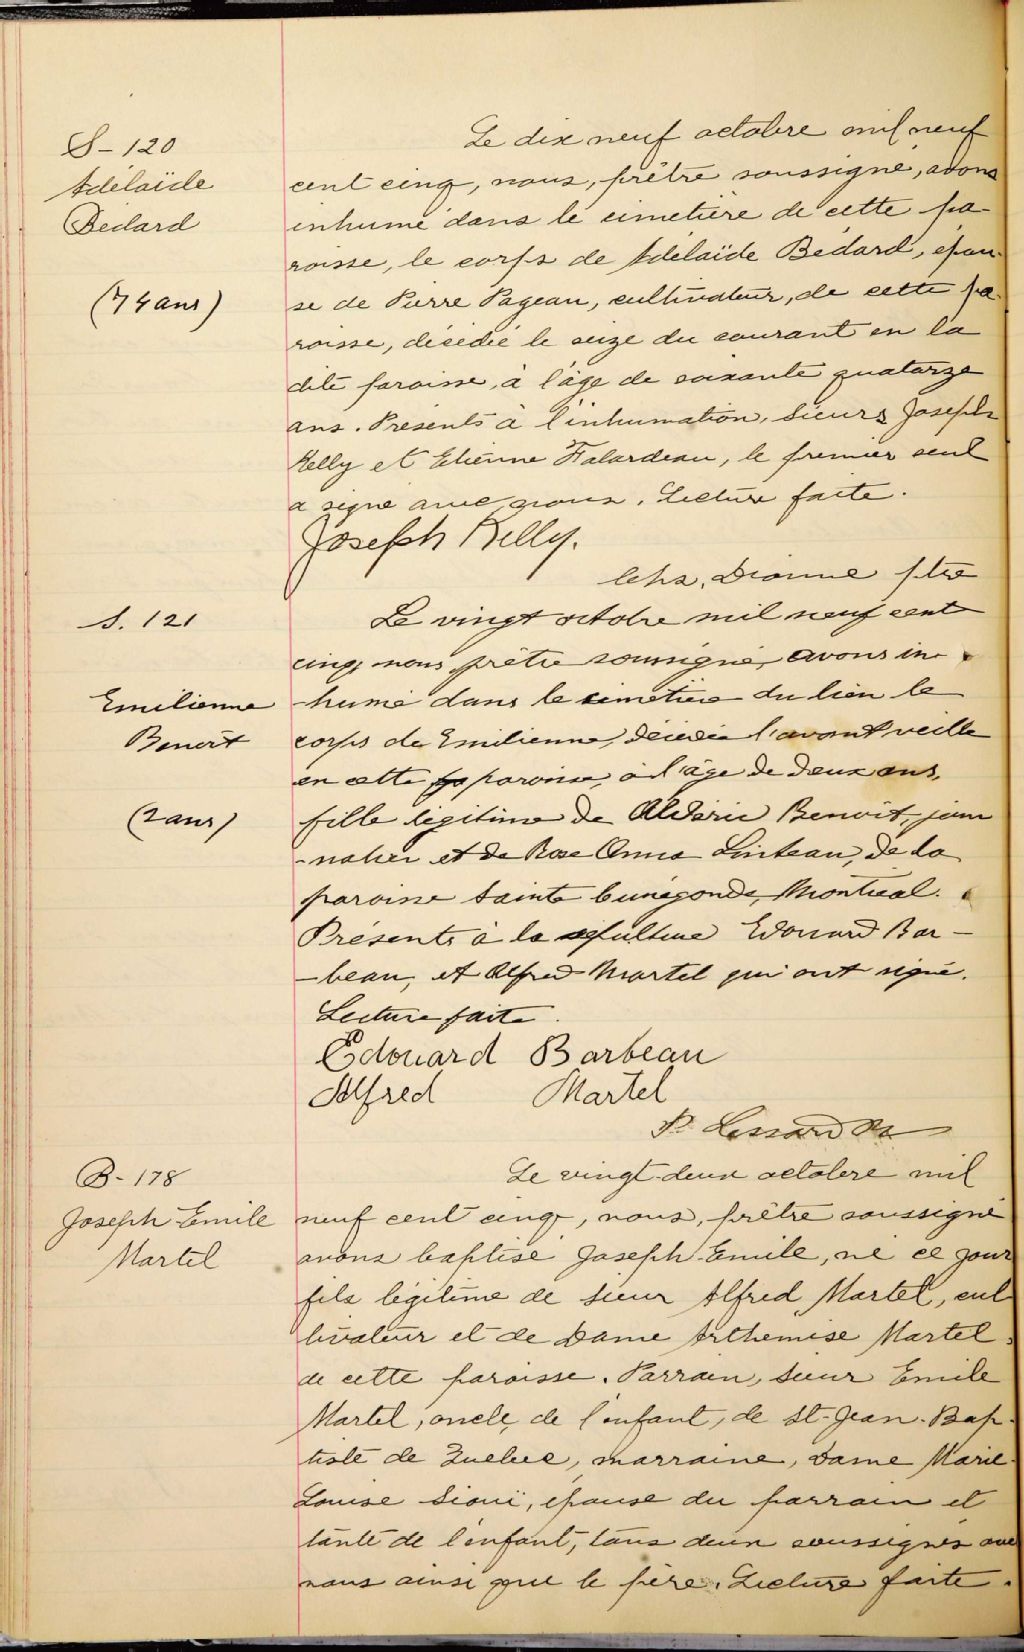 S - 120
Adélaïde
Bédard
(74 ans)
Le dix neuf octobre mil neuf
cent cinq, nous, prêtre soussigné, avons
inhumé dans le cimetière de cette pa-
roisse, le corps de Adélaïde Bédard, épou-
se de Pierre Pageau, cultivateur, de cette pa-
roisse, décédée le seize du courant en la
dite paroisse, à l'âge de soixante quatorze
ans. Présents à l'inhumation, Sieurs Joseph
Kelly et Etienne Falardeau, le premier seul
a signé avec nous. Lecture faite.
Joseph Kelly.
Chs. Dionne ptre
S. 121
Emilienne
Benoît
(2 ans)
Le vingt octobre mil neuf cent
cinq, nous prêtre soussigné, avons in-
-humé dans le cimetière du lieu le
corps de Emilienne, décédée l'avant veille
en cette paroisse, à l'âge de deux ans,
fille légitime de Aldéric Benoit, jour
-nalier et de Rose Anna Linteau, de la
paroisse Sainte Cunégonde, Montréal.
Présents à la sépulture Edouard Bar-
-beau, et Alfred Martel qui ont signé.
Lecture faite.
Edouard Barbeau
Alfred Martel
P. Lessard Ptre
B - 178
Joseph-Emile
Martel
Le vingt-deux octobre mil
neuf cent cinq, nous, prêtre soussigné
avons baptisé Joseph-Emile, né ce jour
fils légitime de Sieur Alfred Martel, cul
tivateur et de Dame Arthémise Martel,
de cette paroisse. Parrain, Sieur Emile
Martel, oncle de l'enfant, de St-Jean-Bap-
tiste de Québec, marraine, Dame Marie-
Louise Siouï, épouse du parrain et
tante de l'enfant, tous deux soussignés avec
nous ainsi que le père. Lecture faite.